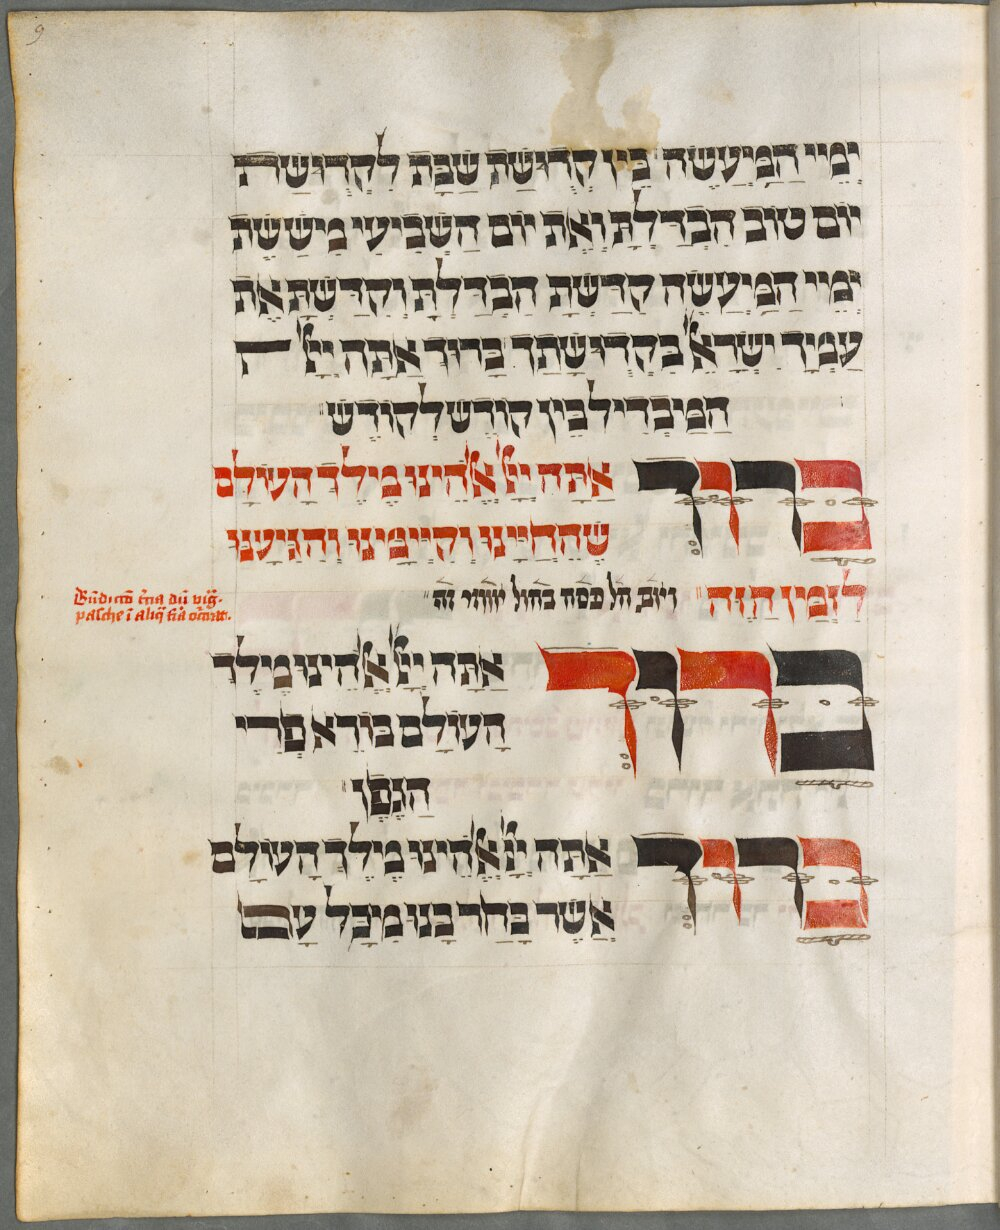 9
יְמֵי הַמַּעֲשֶׂה בֵּין קְדוּשַּׁת שַׁבָּת לִקְדוּשַּׁת
יוֹם טוֹב הִבְדַּלְתָּ וְאֶת יוֹם הַשְּׁבִיעִי מִשֵּׁשֶׁת
יְמֵי הַמַּעֲשֶׂה קִדַּשְׁתָּ הִבְדַּלְתָּ וְקִדַּשְׁתָּ אֶת
עַמְּךָ יִשְׂרָאֵל בִּקְדוּשָּׁתֶךָ בָּרוּךְ אַתָּה יְיָ
הַמַּבְדִּיל בֵּין קוֹדֶשׁ לְקוֹדֶשׁ
בָּרוּךְ אַתָּה יְיָ אֱלֹהֵינוּ מֶלֶךְ הָעוֹלָם
שֶׁהֶחֱיָינוּ וְקִיְּימָנוּ וְהִגִּיעָנוּ
לַזְּמַן הַזֶּה
בָּרוּךְ אַתָּה יְיָ אֱלֹהֵינוּ מֶלֶךְ
הָעוֹלָם בּוֹרֵא פְּרִי
הַגֶּפֶן
בָּרוּךְ אַתָּה יְיָ אֱלֹהֵינוּ מֶלֶךְ הָעוֹלָם
אֲשֶׁר בָּחַר בָּנוּ מִכָּל עַם